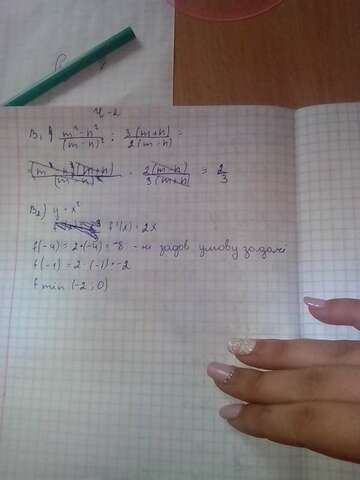 Ч-2
B₁) (m² - n²)/(m - n)² : 3(m+n)/2(m-n) =
(m - n)(m+n)/(m - n)² · 2(m-n)/3(m+n) = 2/3
B₂) y = x²
f'(x) = 2x
f(-4) = 2·(-4) = -8 - не задов умову задачі
f(-1) = 2·(-1) = -2
f min (-2; 0)